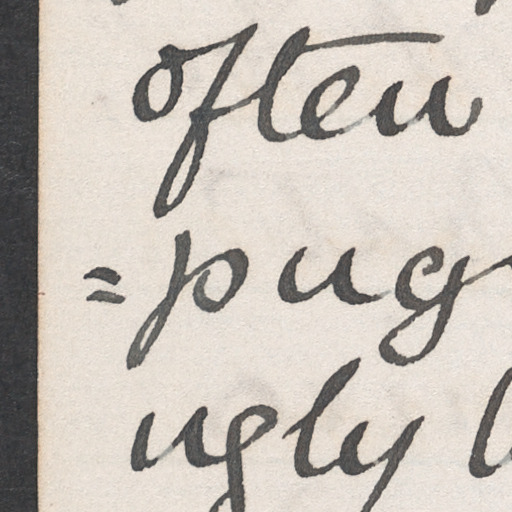 often
=pug
ugly